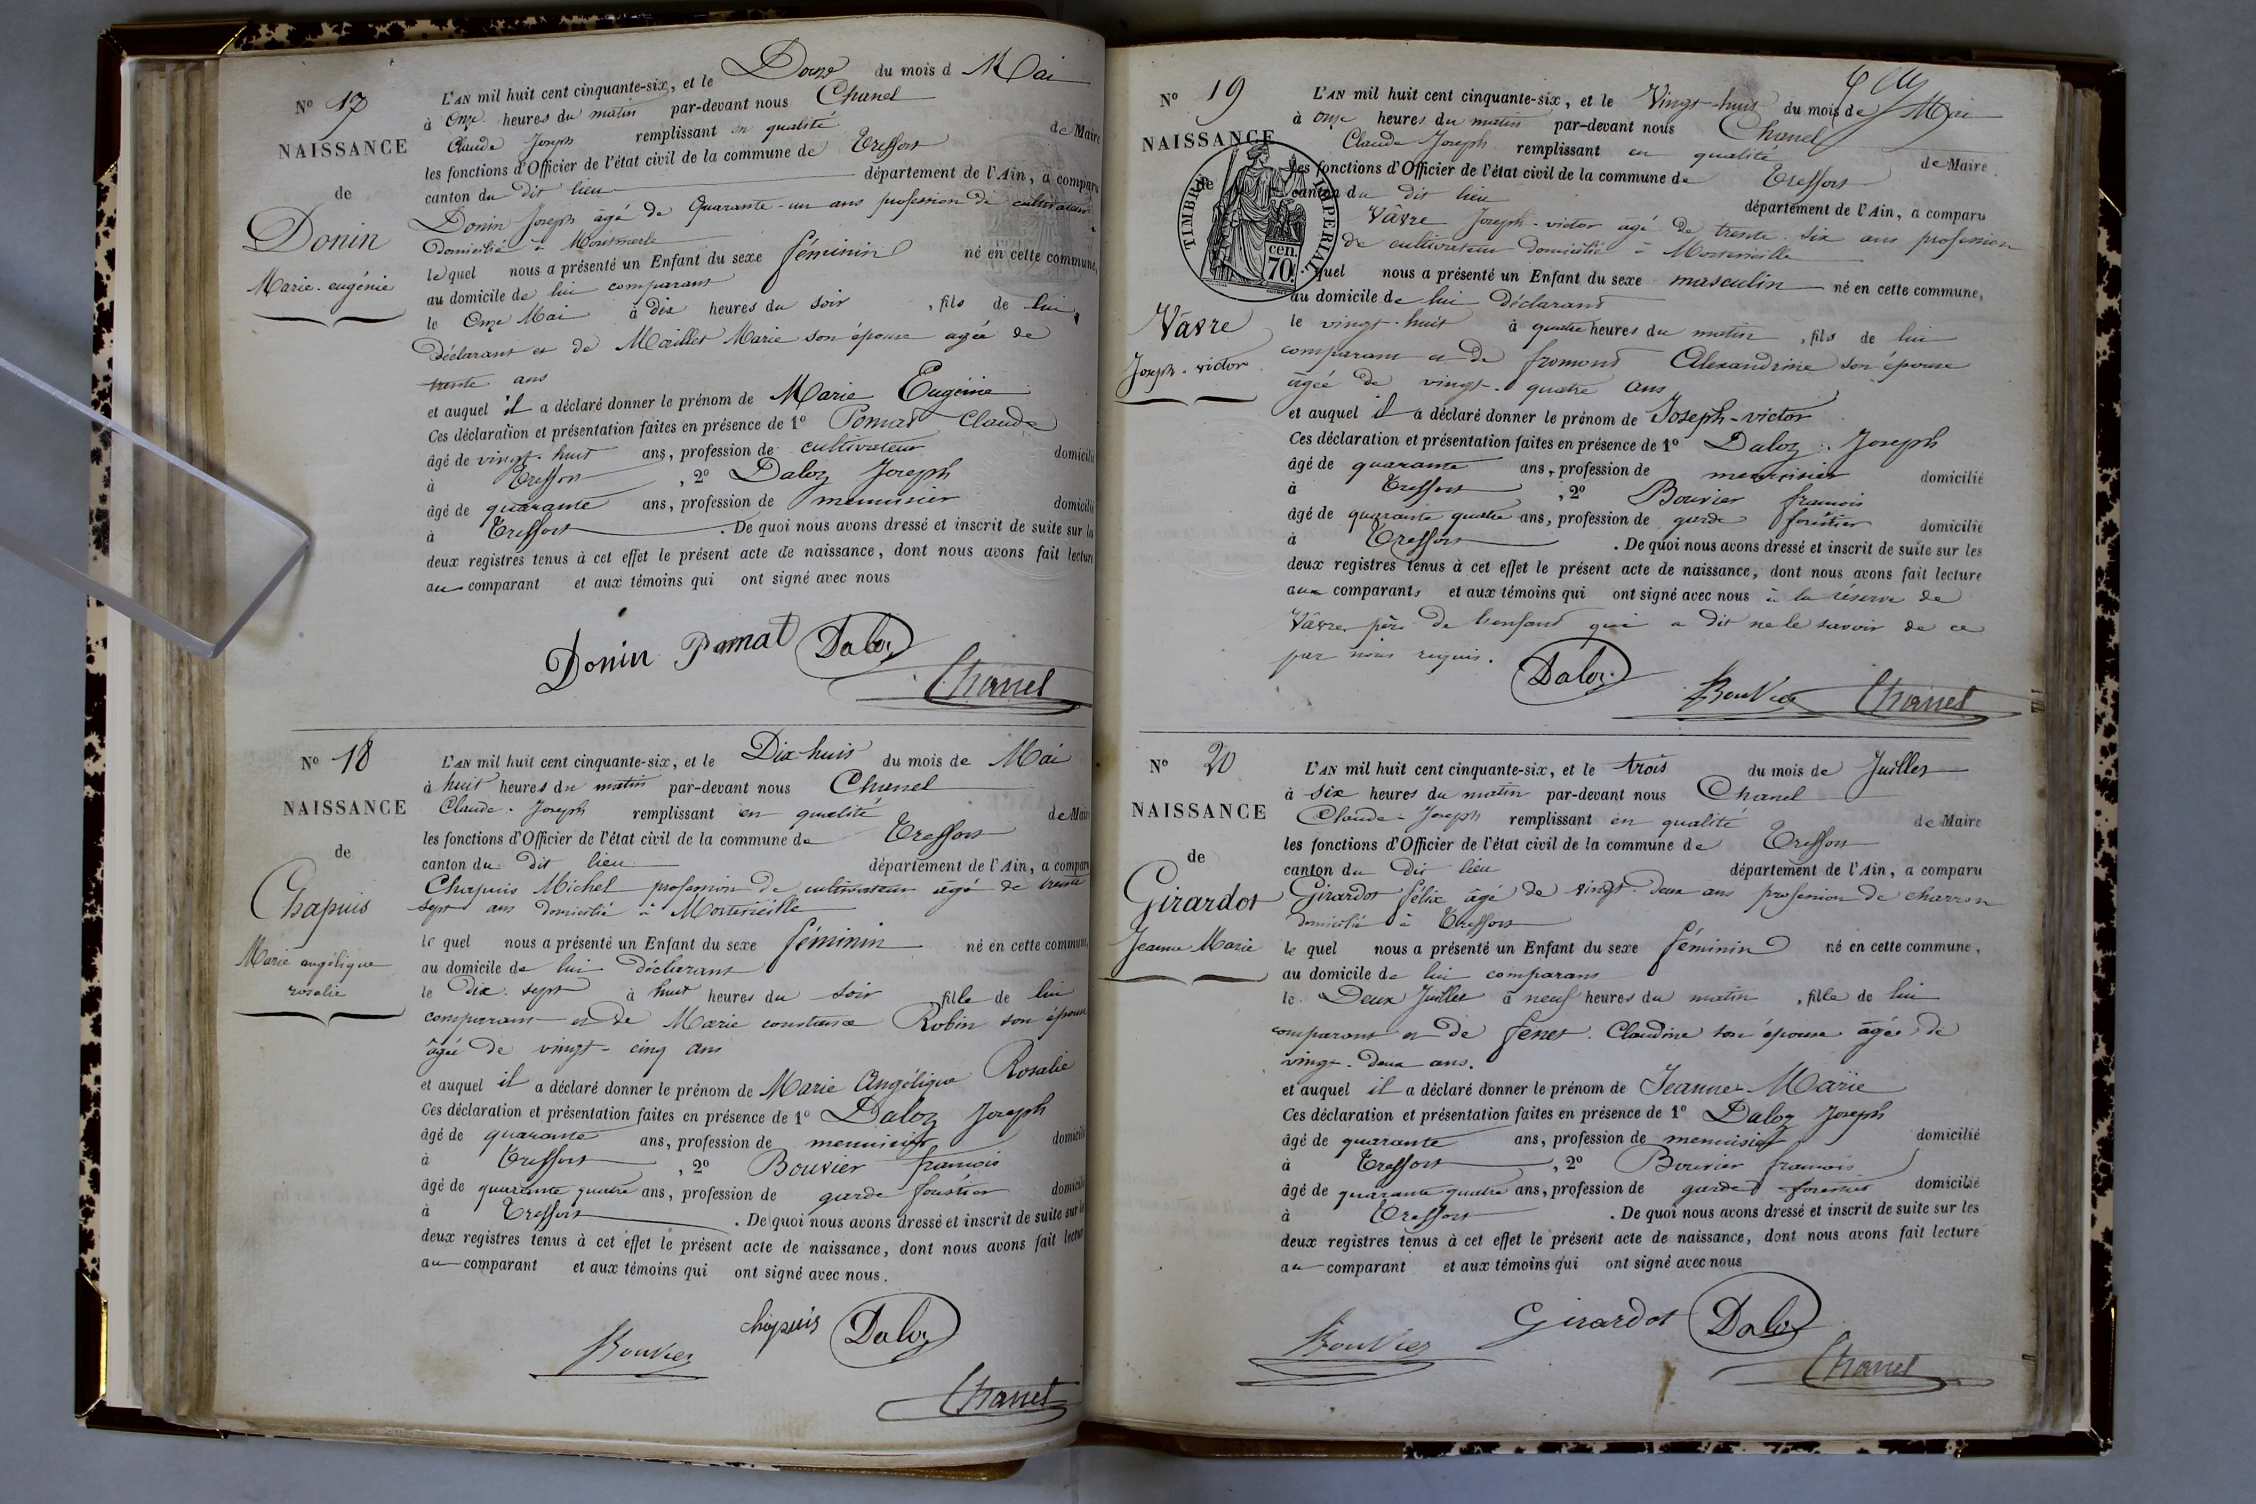 N° 17
NAISSANCE
de
Donin
Marie-eugénie
L'AN mil huit cent cinquante-six, et le Douze du mois d Mai
à Onze heures du matin par-devant nous Chanel
Claude Joseph remplissant en qualité de Maire
les fonctions d'Officier de l'état civil de la commune de Treffort
canton du dit lieu département de l'Ain, a comparu
Donin Joseph âgé de Quarante-un ans profession de cultivateur
domicilié à
lequel nous a présenté un Enfant du sexe féminin né en cette commune,
au domicile de lui comparant
le Onze Mai à dix heures du soir , fils de lui
Déclarant et de Maillet Marie son épouse agée de
trente ans
et auquel il a déclaré donner le prénom de Marie Eugénie
Ces déclaration et présentation faites en présence de 1° Pomat Claude
âgé de vingt-huit ans, profession de cultivateur domicilié
à Treffort , 2° Daloz Joseph
âgé de quarante ans, profession de menuisier domicilié
à Treffort . De quoi nous avons dressé et inscrit de suite sur les
deux registres tenus à cet effet le présent acte de naissance, dont nous avons fait lecture
au comparant et aux témoins qui ont signé avec nous
Donin Pomat Daloz
Chanel
N° 18
NAISSANCE
de
Chapuis
Marie angélique
rosalie
L'AN mil huit cent cinquante-six, et le Dix-huit du mois de Mai
à huit heures du matin par-devant nous Chanel
Claude-Joseph remplissant en qualité de Maire
les fonctions d'Officier de l'état civil de la commune de Treffort
canton du dit lieu département de l'Ain, a comparu
Chapuis Michel profession de cultivateur agé de trente
sept ans domicilié à Montevieille
le quel nous a présenté un Enfant du sexe féminin né en cette commune,
au domicile de lui déclarant
le dix-sept à huit heures du soir fille de lui
comparant et de Marie constance Robin son épouse
âgée de vingt-cinq ans
et auquel il a déclaré donner le prénom de Marie Angélique Rosalie
Ces déclaration et présentation faites en présence de 1° Daloz Joseph
âgé de quarante ans, profession de menuisier domicilié
à Treffort , 2° Bouvier francois
âgé de quarante quatre ans, profession de garde forestier domicilié
à Treffort . De quoi nous avons dressé et inscrit de suite sur les
deux registres tenus à cet effet le présent acte de naissance, dont nous avons fait lecture
au comparant et aux témoins qui ont signé avec nous.
Bouvier chapuis Daloz
Chanel
N° 19
NAISSANCE
de
TIMBRE IMPERIAL
70 cen.
Vâvre
Joseph-victor
L'AN mil huit cent cinquante-six, et le Vingt-huit du mois de Mai
à onze heures du matin par-devant nous Chanel
Claude Joseph remplissant en qualité de Maire
les fonctions d'Officier de l'état civil de la commune de Treffort
canton du dit lieu département de l'Ain, a comparu
Vâvre Joseph-victor agé de trente-six ans profession
de cultivateur domicilié à Montevieille
quel nous a présenté un Enfant du sexe masculin né en cette commune,
au domicile de lui Déclarant
le vingt-huit à quatre heures du matin , fils de lui
comparant et de fromont Alexandrine son épouse
âgée de vingt-quatre ans
et auquel il a déclaré donner le prénom de Joseph-victor
Ces déclaration et présentation faites en présence de 1° Daloz Joseph
âgé de quarante ans, profession de menuisier domicilié
à Treffort , 2° Bouvier francois
âgé de quarante quatre ans, profession de garde forestier domicilié
à Treffort . De quoi nous avons dressé et inscrit de suite sur les
deux registres tenus à cet effet le présent acte de naissance, dont nous avons fait lecture
aux comparants et aux témoins qui ont signé avec nous à la réserve de
Vâvre père de l'enfant qui a dit ne le savoir de ce
par nous requis.
Daloz
Bouvier Chanel
N° 20
NAISSANCE
de
Girardot
Jeanne Marie
L'AN mil huit cent cinquante-six, et le trois du mois de Juillet
à six heures du matin par-devant nous Chanel
Claude-Joseph remplissant en qualité de Maire
les fonctions d'Officier de l'état civil de la commune de Treffort
canton du dit lieu département de l'Ain, a comparu
Girardot félix âgé de vingt-deux ans profession de charron
domicilié à Treffort
le quel nous a présenté un Enfant du sexe féminin né en cette commune,
au domicile de lui comparant
le Deux Juillet à neuf heures du matin , fille de lui
comparant et de fenet Claudine son épouse âgée de
vingt-deux ans.
et auquel il a déclaré donner le prénom de Jeanne Marie
Ces déclaration et présentation faites en présence de 1° Daloz Joseph
âgé de quarante ans, profession de menuisier domicilié
à Treffort , 2° Bouvier francois
âgé de quarante quatre ans, profession de garde forestier domicilié
à Treffort . De quoi nous avons dressé et inscrit de suite sur les
deux registres tenus à cet effet le présent acte de naissance, dont nous avons fait lecture
au comparant et aux témoins qui ont signé avec nous
Bouvier Girardot Daloz
Chanel